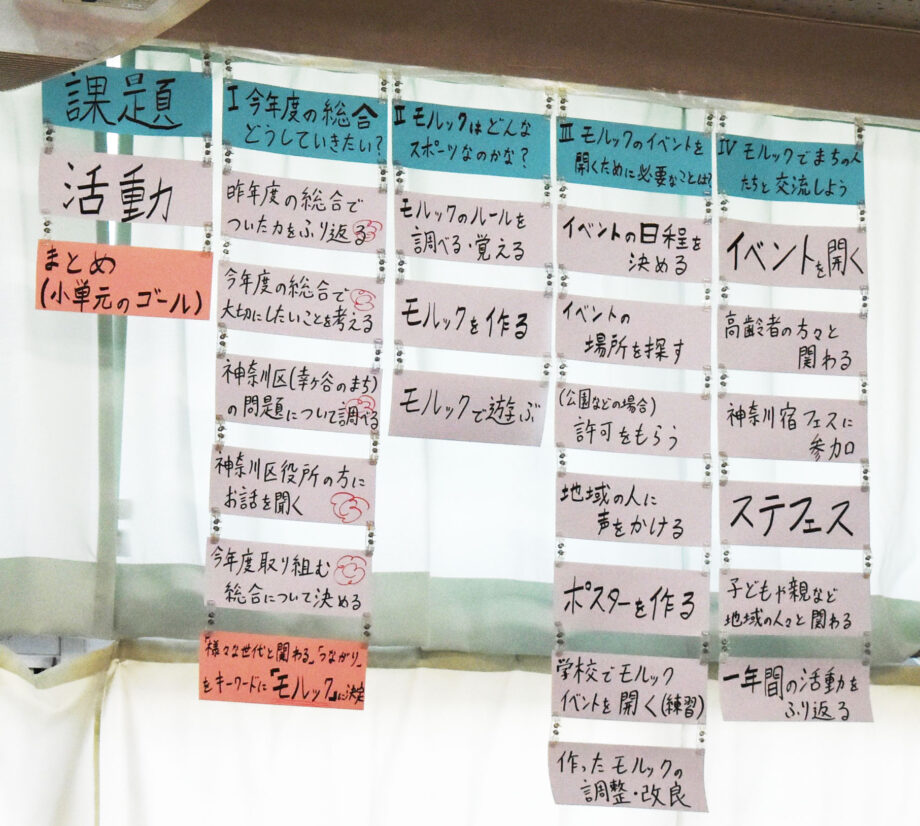 課題
活動
まとめ
(小単元のゴール)
Ⅰ 今年度の総合
どうしていきたい?
昨年度の総合で
ついた力をふり返る
今年度の総合で
大切にしたいことを考える
神奈川区(幸ケ谷のまち)
の問題について調べる
神奈川区役所の方に
お話を聞く
今年度取り組む
総合について決める
「様々な世代と関わる」「つながり」
をキーワードに『モルック』に決定
Ⅱ モルックはどんな
スポーツなのかな?
モルックのルールを
調べる・覚える
モルックを作る
モルックで遊ぶ
Ⅲ モルックのイベントを
開くために必要なことは?
イベントの日程を
決める
イベントの
場所を探す
(公園などの場合)
許可をもらう
地域の人に
声をかける
ポスターを作る
学校でモルック
イベントを開く(練習)
作ったモルックの
調整・改良
Ⅳ モルックでまちの人
たちと交流しよう
イベントを開く
高齢者の方々と
関わる
神奈川宿フェスに
参加
ステフェス
子どもや親など
地域の人々と関わる
一年間の活動を
ふり返る